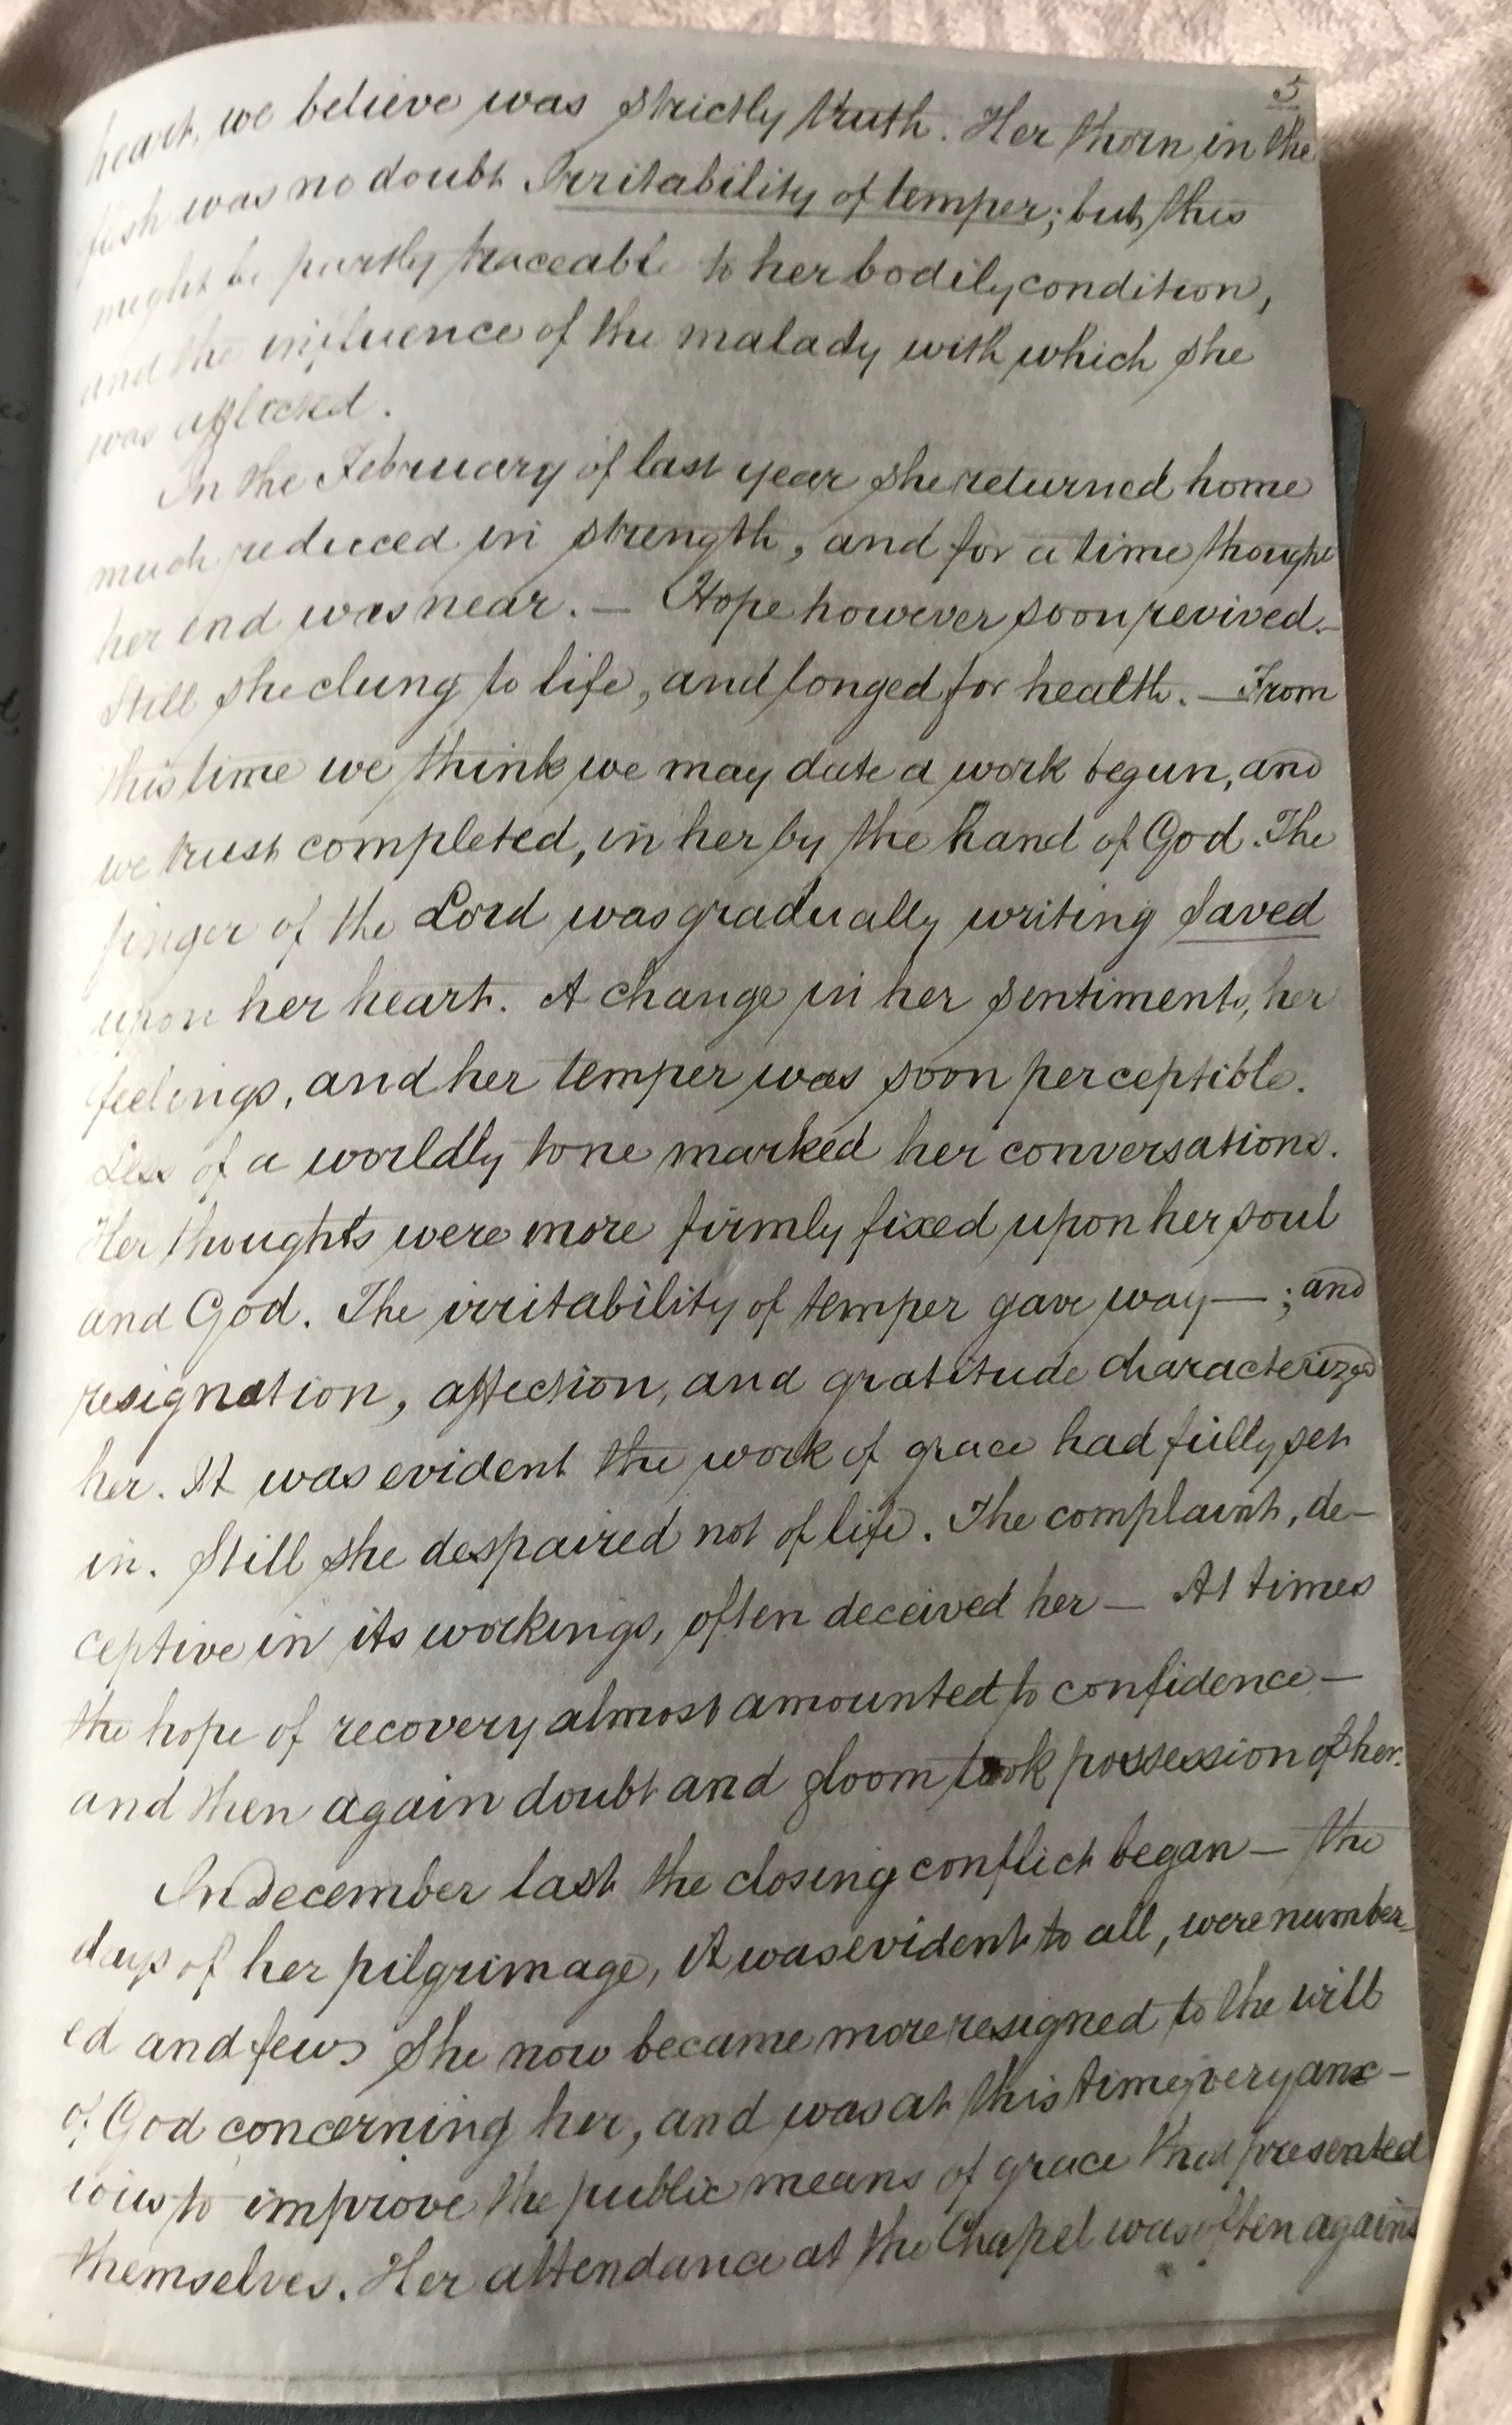 5
heart, we believe was strictly truth. Her thorn in the
flesh was no doubt Irritability of temper; but this
might be partly traceable to her bodily condition,
and the influence of the malady with which she
was afflicted.
In the February of last year she returned home
much reduced in strength, and for a time thought
her end was near. — Hope however soon revived. —
Still she clung to life, and longed for health. — From
this time we think we may date a work begun, and
we trust completed, in her by the hand of God. The
finger of the Lord was gradually writing saved
upon her heart. A change in her sentiments, her
feelings, and her temper was soon perceptible.
Less of a worldly tone marked her conversations.
Her thoughts were more firmly fixed upon her soul
and God. The irritability of temper gave way — ; and
resignation, affection, and gratitude characterized
her. It was evident the work of grace had fully set
in. Still she despaired not of life. The complaint, de-
ceptive in its workings, often deceived her — At times
the hope of recovery almost amounted to confidence —
and then again doubt and gloom took possession of her.
In December last the closing conflict began — the
days of her pilgrimage, it was evident to all, were number-
ed and few. She now became more resigned to the will
of God concerning her, and was at this time very anx-
ious to improve the public means of grace that presented
themselves. Her attendance at the Chapel was often against